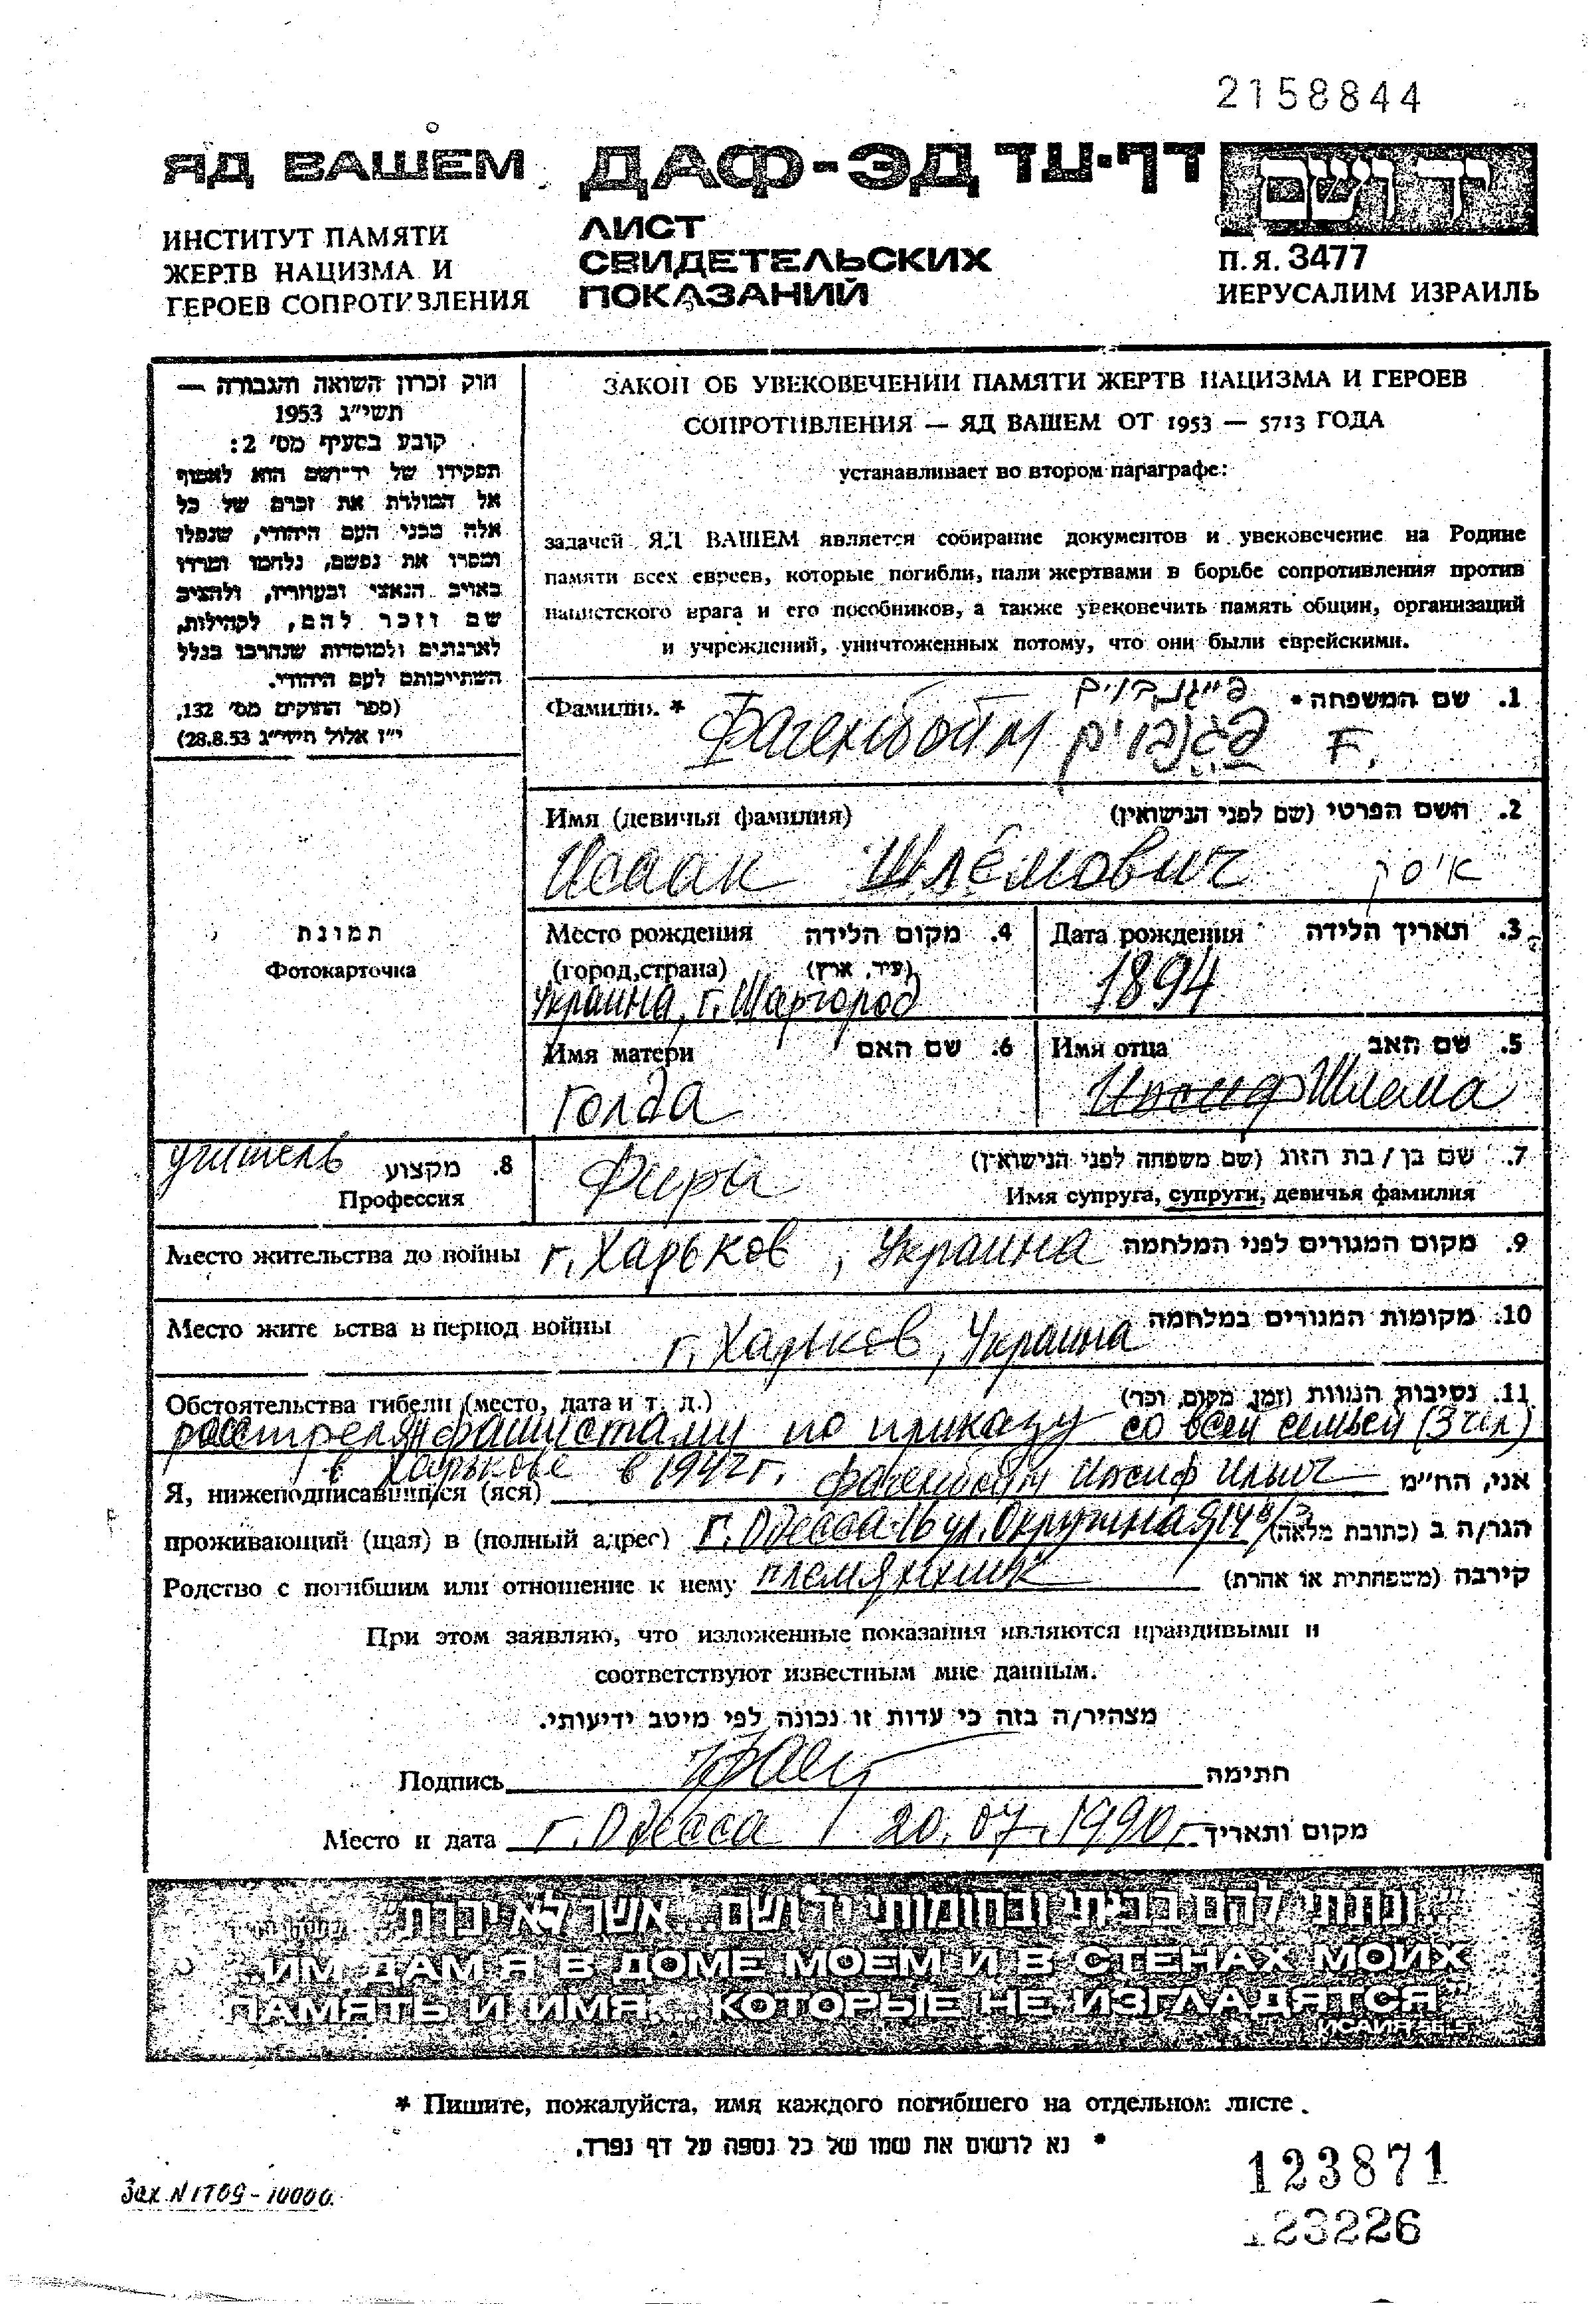 2158844
ЯД ВАШЕМ ДАФ-ЭД דף-עד יד ושם
ИНСТИТУТ ПАМЯТИ
ЖЕРТВ НАЦИЗМА И
ГЕРОЕВ СОПРОТИВЛЕНИЯ
ЛИСТ
СВИДЕТЕЛЬСКИХ
ПОКАЗАНИЙ
П.Я. 3477
ИЕРУСАЛИМ ИЗРАИЛЬ
חוק זכרון השואה והגבורה —
תשי״ג 1953
קובע בסעיף מס׳ 2:
תפקידו של יד-ושם הוא לאסוף
אל המולדת את זכרם של כל
אלה מבני העם היהודי, שנפלו
ומסרו את נפשם, נלחמו ומרדו
באויב הנאצי ובעוזריו, ולהציב
שם וזכר להם, לקהילות,
לארגונים ולמוסדות שנחרבו בגלל
השתייכותם לעם היהודי.
(ספר החוקים מס׳ 132,
י״ז אלול תשי״ג 28.8.53)
ЗАКОН ОБ УВЕКОВЕЧЕНИИ ПАМЯТИ ЖЕРТВ НАЦИЗМА И ГЕРОЕВ
СОПРОТИВЛЕНИЯ — ЯД ВАШЕМ ОТ 1953 — 5713 ГОДА
устанавливает во втором параграфе:
задачей ЯД ВАШЕМ является собирание документов и увековечение на Родине
памяти всех евреев, которые погибли, пали жертвами в борьбе сопротивления против
нацистского врага и его пособников, а также увековечить память общин, организаций
и учреждений, уничтоженных потому, что они были еврейскими.
Фамилия * פייגנבוים 1. שם המשפחה *
Фагенбойм פגנבוים F.
Имя (девичья фамилия) 2. השם הפרטי (שם לפני הנישואין)
Исаак Шлёмович איסק
תמונת
Фотокарточка
Место рождения 4. מקום הלידה
(город, страна) (עיר, ארץ)
Украина, г. Шаргород
Дата рождения 3. תאריך הלידה
1894
Имя матери 6. שם האם
Голда
Имя отца 5. שם האב
Иосиф Шлема
учитель 8. מקצוע
Профессия
Фира 7. שם בן / בת הזוג (שם משפחה לפני הנישואין)
Имя супруга, супруги, девичья фамилия
Место жительства до войны г. Харьков, Украина 9. מקום המגורים לפני המלחמה
Место жите ьства в период войны г. Харьков, Украина 10. מקומות המגורים במלחמה
Обстоятельства гибели (место, дата и т. д.) 11. נסיבות המוות (זמן, מקום, וכו')
расстрелян фашистами по приказу со всей семьей (3 чел)
в Харькове в 1942 г.
Я, нижеподписавшийся (яся) Фагенбойм Иосиф Ильич אני, הח״מ
проживающий (щая) в (полный адрес) г. Одесса-16 ул. Окружная הגר/ה ב (כתובת מלאה)
Родство с погибшим или отношение к нему племянник קירבה (משפחתית או אחרת)
При этом заявляю, что изложенные показания являются правдивыми и
соответствуют известным мне данным.
מצהיר/ה בזה כי עדות זו נכונה לפי מיטב ידיעותי.
Подпись חתימה
Место и дата г. Одесса 20.07.1990 г. מקום ותאריך
"...ונתתי להם בביתי ובחומותי יד ושם... אשר לא יכרת"
"...ИМ ДАМ Я В ДОМЕ МОЕМ И В СТЕНАХ МОИХ
ПАМЯТЬ И ИМЯ... КОТОРЫЕ НЕ ИЗГЛАДЯТСЯ"
* Пишите, пожалуйста, имя каждого погибшего на отдельном листе.
* נא לרשום את שמו של כל נספה על דף נפרד.
Зак. N 1709-10000.
123871
123226